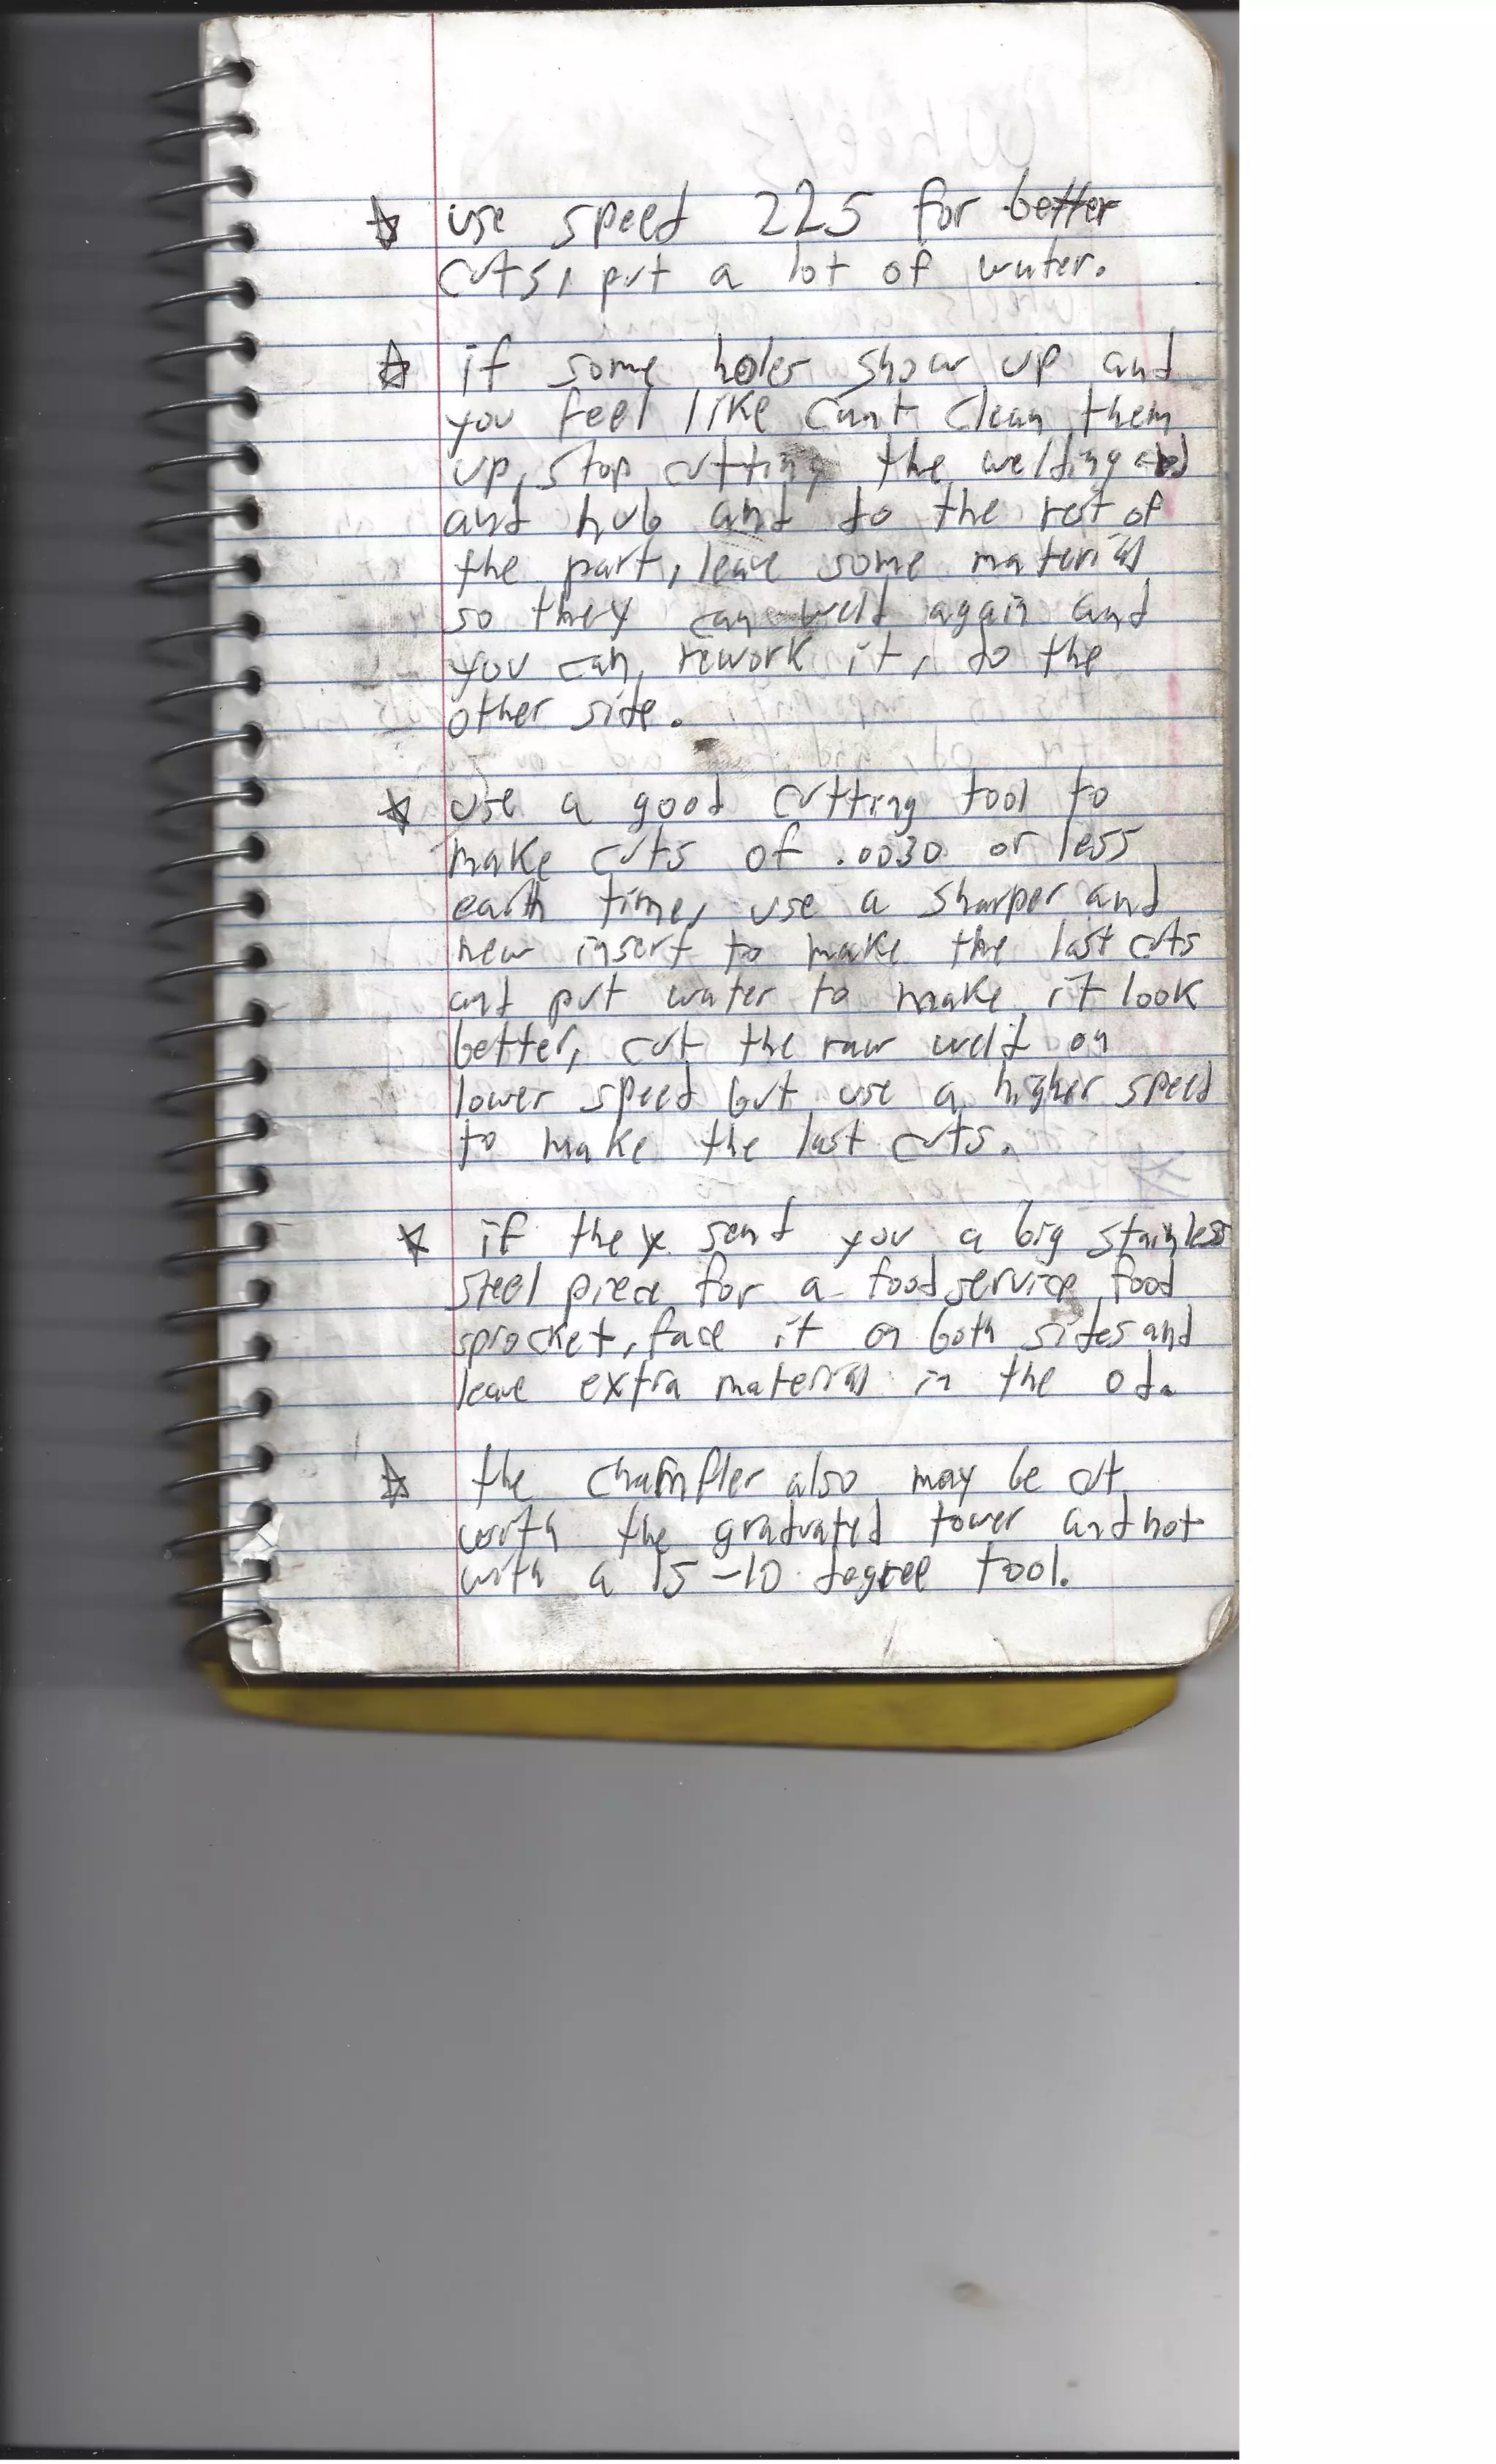 ☆ use speed 225 for better
cuts, put a lot of water.
☆ if some holes show up and
you feel like cant clean them
up, stop cutting the welding
and hub and do the rest of
the part, leave some material
so they can weld again and
you can rework it, do the
other side.
☆ use a good cutting tool to
make cuts of .0030 or less
each time, use a sharper and
new insert to make the last cuts
and put water to make it look
better, cut the raw weld on
lower speed but use a higher speed
to make the last cuts.
☆ if they send you a big stainless
steel piece for a food service food
sprocket, face it on both sides and
leave extra material in the od.
☆ the chamfler also may be cut
with the graduated tower and not
with a 15-10 degree tool.